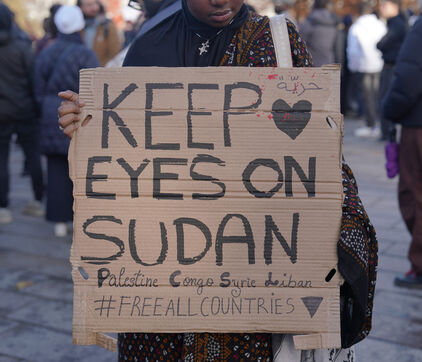 حريّة
KEEP
EYES ON
SUDAN
Palestine Congo Syrie Liban
#FREEALLCOUNTRIES